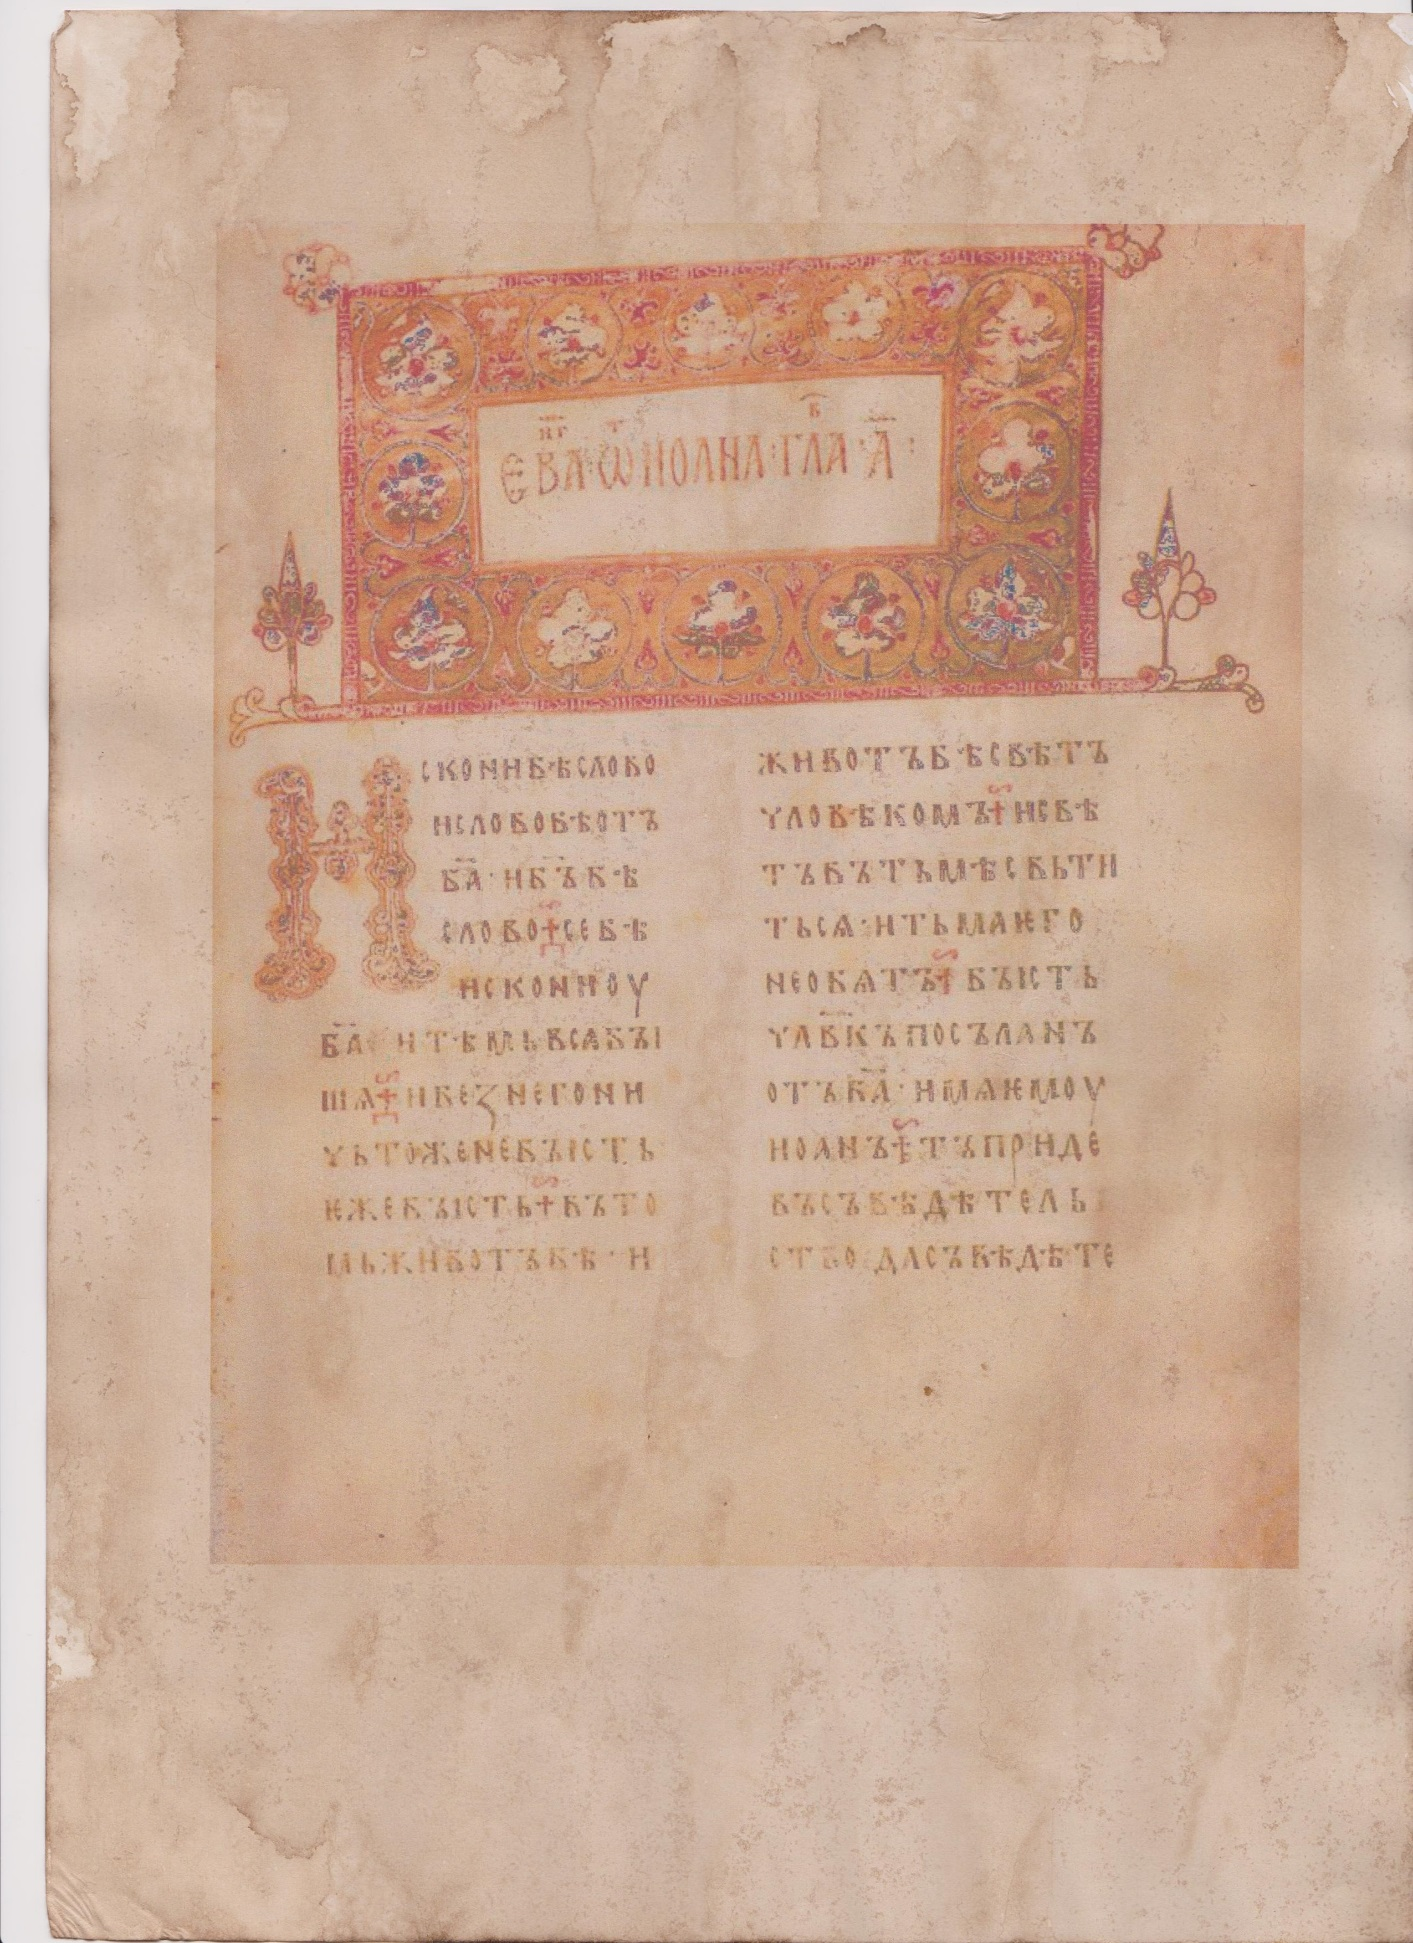 ЕВА҃НГ · Ѿ ИОАНА · ГЛАВ · А҃ ·
ИСКОНИБѢСЛОВО
ИСЛОВОБѢОТЪ
БА҃ · ИБ҃ЪБѢ
СЛОВО ⁘ СЕБѢ
ИСКОНИОУ
БА҃ ИТѢМЬВСѦБЪІ
ШѦ ⁘ ИБЕꙀНЕГОНИ
ЧЬТОЖЕНЕБЪІСТЬ
ѤЖЕБЪІСТЬ ⁘ ВЪТО
МЬЖИВОТЪБѢ · И
ЖИВОТЪБѢСВѢТЪ
ЧЛОВѢКОМЪ ⁘ ИСВѢ
ТЪВЪТЬМѢСВЬТИ
ТЬСѦ · ИТЬМАѤГО
НЕОБѦТЪ ⁘ БЪІСТЬ
ЧЛВ҃КЪПОСЪЛАНЪ
ОТЪБА҃ · ИМѦѤМОУ
ИОАНЪ ⁘ ТЪПРИДЕ
ВЪСЪВѢДѢТЕЛЬ
СТВО · ДАСЪВѢДѢТЕ